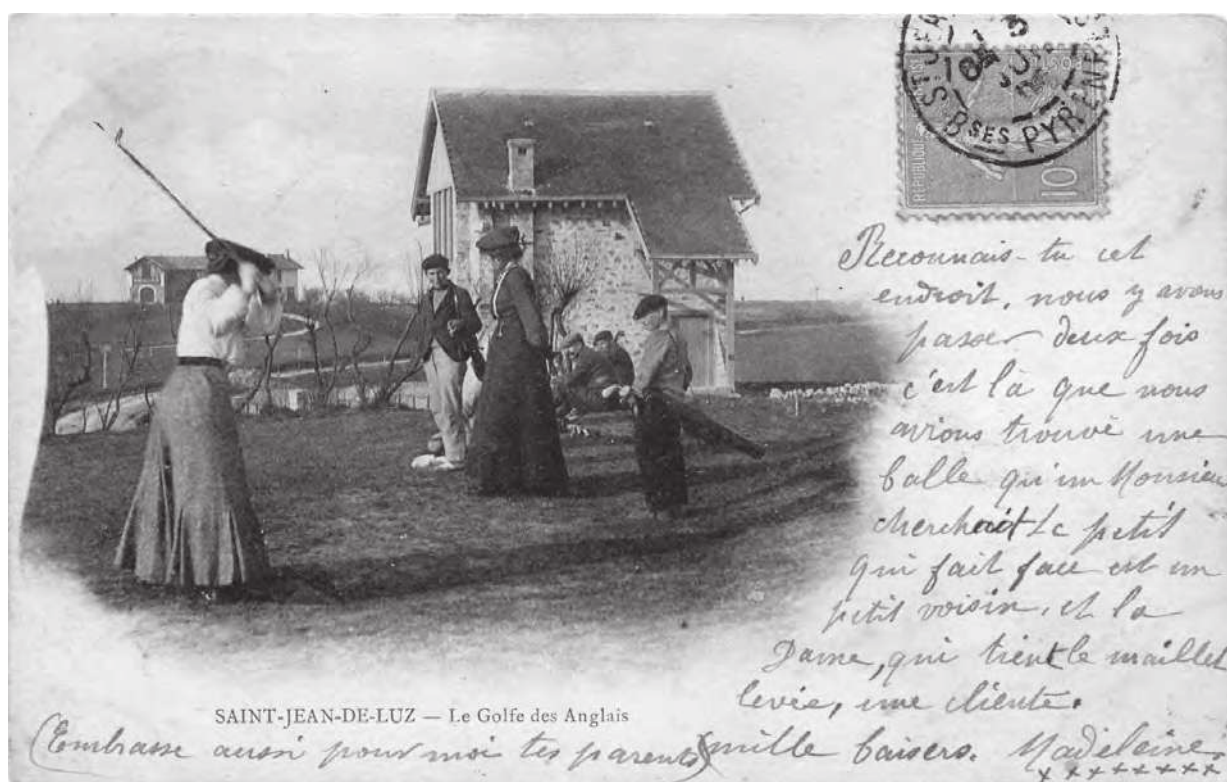 RÉPUBLIQUE
POST
10
Bses PYRENE
Reconnais-tu cet
endroit, nous y avons
passer deux fois
c'est là que nous
avions trouvé une
balle qu'un Monsieur
cherchait Le petit
qui fait face est un
petit voisin, et la
Dame, qui tient le maillet
levée, une cliente.
SAINT-JEAN-DE-LUZ — Le Golfe des Anglais
(Embrasse aussi pour moi tes parents) mille baisers. Madeleine
x x x x x x x x